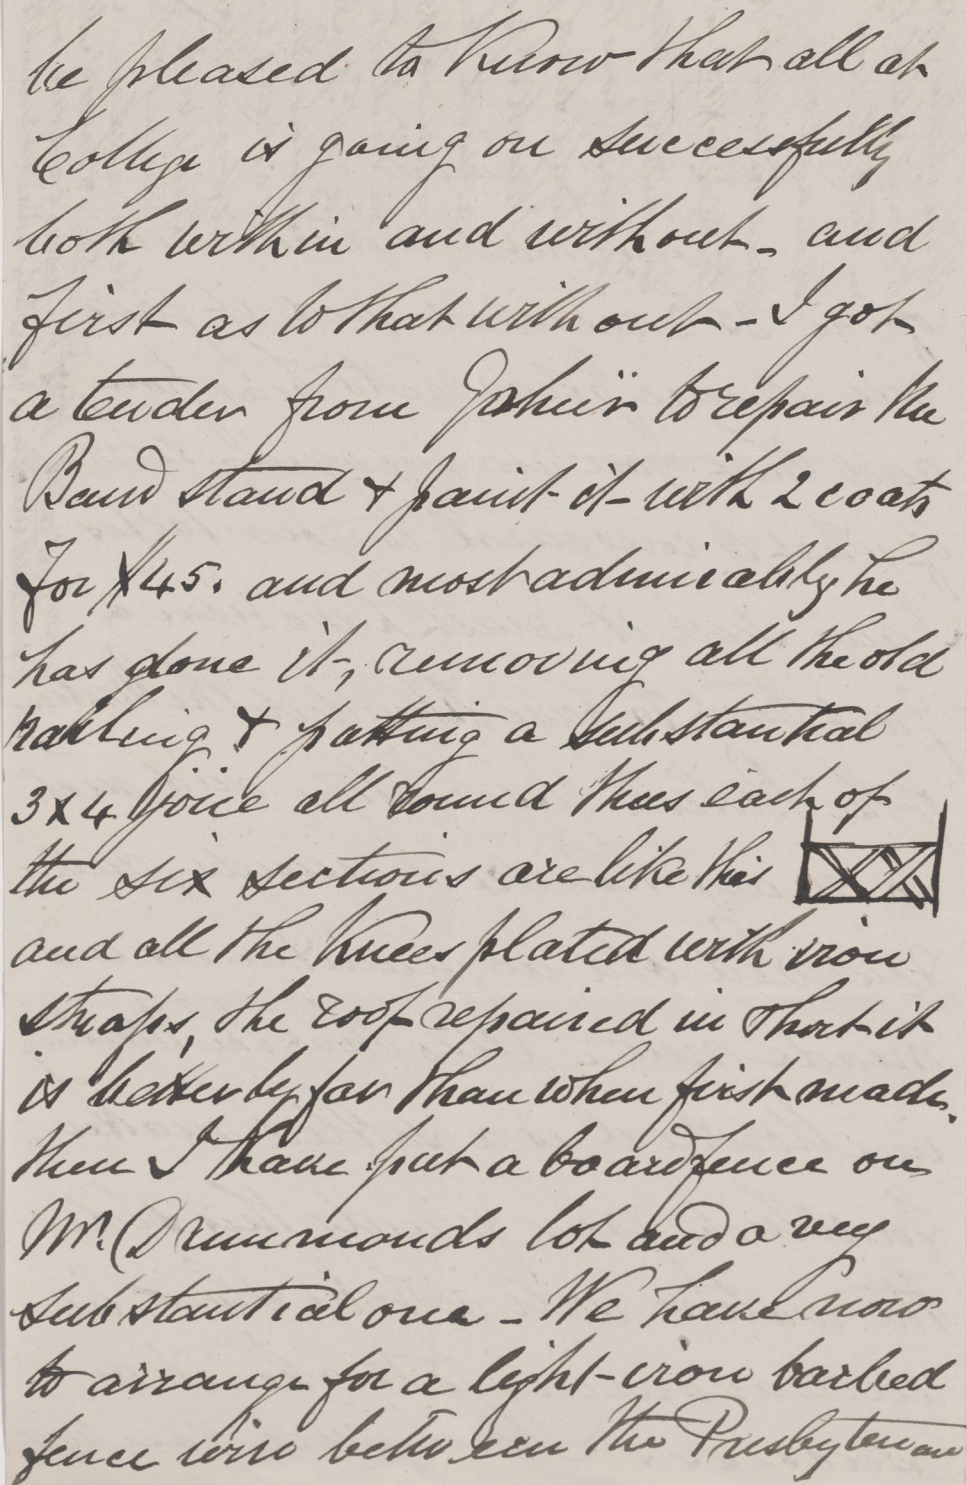 be pleased to know that all at
College is going on successfully
both within and without - and
first as to that without - I got
a tender from to repair the
Band stand & paint it with 2 coats
for $45. and most admirably he
has done it, removing all the old
railing & putting a substantial
3x4 joice all round thus each of
the six sections are like this
and all the knees plated with iron
straps, the roof repaired in short it
is better by far than when first made.
then I have put a board fence on
Mr. Drummonds lot and a very
substantial one - We have now
to arrange for a light iron barbed
fence wire between the Presbyterian